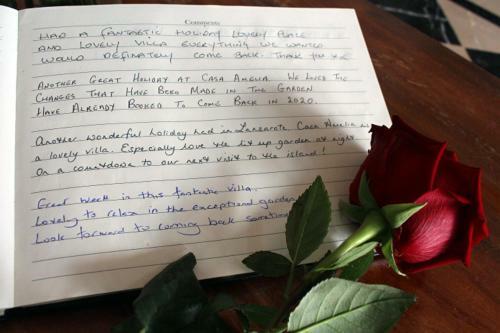 Comments
HAD A FANTASTIC HOLIDAY LOVELY PLACE
AND LOVELY VILLA EVERYTHING WE WANTED
WOULD DEFINATELY COME BACK. THANK YOU
ANOTHER GREAT HOLIDAY AT CASA AMELIA. WE LOVED THE
CHANGES THAT HAVE BEEN MADE IN THE GARDEN
HAVE ALREADY BOOKED TO COME BACK IN 2020.
Another wonderful holiday had in Lanzarote. Casa Amelia is
a lovely villa. Especially love the lit up garden at night
On a countdown to our next visit to the island!
Great week in this fantastic villa.
Lovely to relax in the exceptional garden
Look forward to coming back